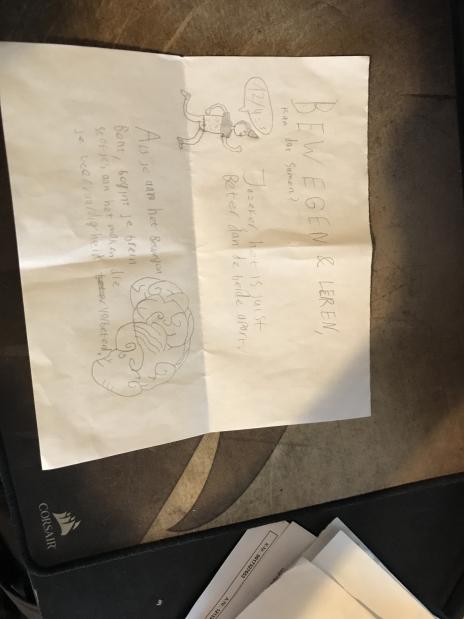 BEWEGEN & LEREN,
Kan dat samen?
12/4=3
Jazeker, het is juist
Beter dan de beide apart.
Als je aan het Bewegen
Bent, begint je brein
stofjes aan het maken die
je leervaardigheid verbeteren.
CORSAIR